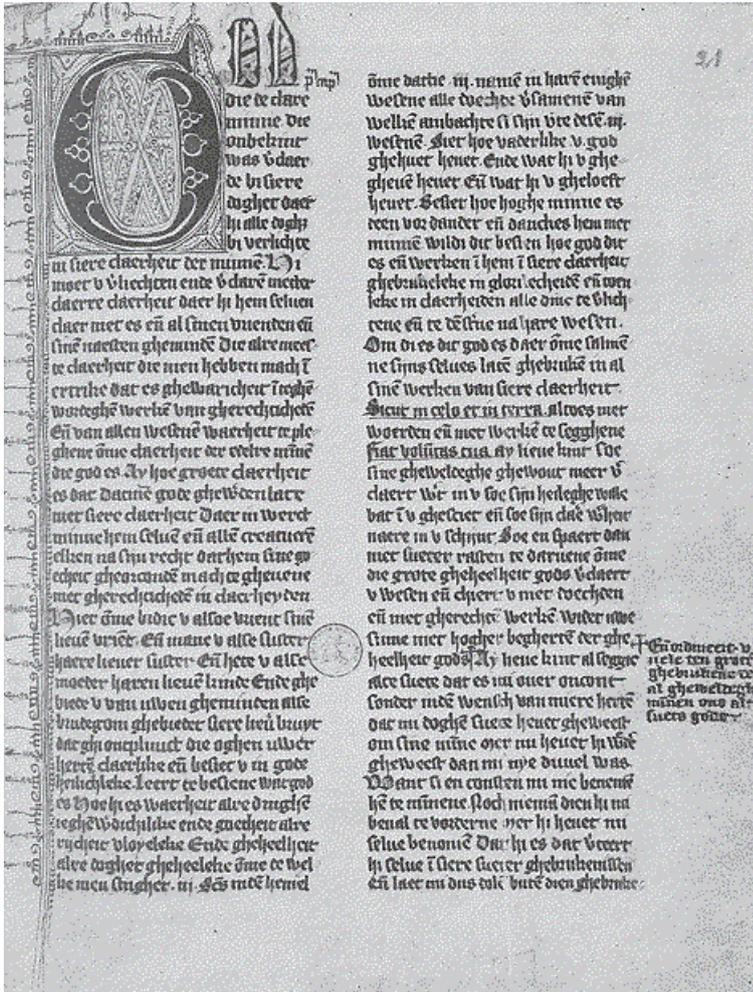 21
God
die de clare
minne die
onbekint
was v̄daer
de bi siere
doghet daer
hi alle dogh
bi verlichte
in siere claerheit der minnē. Hi
moet v v̄liechten ende v̄clarē metter
claerre claerheit daer hi hem seluen
claer met es eñ al sinen vrienden eñ
sinē naesten ghemindē Die alremees
te claerheit die men hebben mach ī
ertrike dat es ghewaricheit ī ieghē
wordeghē werkē van gherechticheidē
Eñ van allen wesenē waerheit te ple
ghene ōme claerheit der edelre minnē
die god es. Ay hoe groete claerheit
es dat datmē gode ghew̄den late
met siere claerheit Daer in werct
minne hem seluē eñ allē creaturē
elken na sijn recht dat hem sine go
echeit gheorcondē mach te gheuene
met gherechticheidē in claerheyden
Hier ōme bidic v alsoe vrient sinē
lieuē vrient. Eñ mane v alse suster
haere lieuer suster Eñ hete v alse
moeder haren lieuē kinde Ende ghe
biede v van uwen gheminden alse
brudegom ghebiedet siere lieū bruyt
dat ghi ontpluuct die oghen uwer
hertē claerlike eñ besiet v in gode
heilichleke. Leert te besiene wat god
es Hoe hi es waerheit alre dinghē
ieghēw̄dichlike ende goetheit alre
rijcheit vloyeleke Ende gheheelheit
alre doghet gheheeleke ōme de wel
ke men singhet .iij. Sc̄s indē hemel
ōme datse .iij. namē in harē eneghē
wesene alle doechde v̄samenē van
welkē ambachte si sijn vte desē .iij.
wesenē. Siet hoe vaderlike v god
ghehuet heuet. Ende wat hi v ghe
gheuē heuet Eñ wat hi v gheloeft
heuet. Besiet hoe hoghe minne es
deen vor dander eñ danches hem met
minnē wildi dit besien hoe god dit
es eñ werken ī hem ī siere claerheit
ghebrukeleke in glorilecheidē eñ toen
leke in claerheiden alle dinc te v̄lich
tene eñ te dēst̄ne na hare wesen.
Om di es dit god es daer ōme salmē
ne sijns selues latē ghebrukē in al
sinē werken van siere claerheit
Sicut in celo et in terra. altoes met
woerden eñ met werkē te segghene
fiat volūtas tua. ay lieue kint soe
sine gheweldeghe ghewout meer v̄
claert w̄t in v soe sijn heileghe wille
bat ī v ghesciet eñ soe sijn clae w̄heit
naere in v schijnt Soe en spaert dan
met sueter rasten te daruene ōme
die grote gheheelheit gods v̄claert
v wesen eñ chiert v met doechden
eñ met gherechtē werkē. Widet uwe
sinne met hogher begherten der ghe
heelheit gods Ay lieue kint al segge
alte suete dat es mi ouer oncont
sonder indē wensch van miere hertē
dat mi doghē suete heuet gheweest
om sine minne Mer nu heuet hi w̄der
gheweest dan mi nye diuuel was.
Want si en consten mi nie benemē
hē te minnene Noch nemēn dien hi mi
beual te vorderne Mer hi heuet mi
selue benomē Dat hi es dat v̄teert
hi selue ī siere sueter ghebrukenissen
eñ laet mi dus dolē butē dien ghebruke
Eñ ordineert v
nele ten grotē
ghebrukene en
al gheweldegh
minen ons al
suets gods